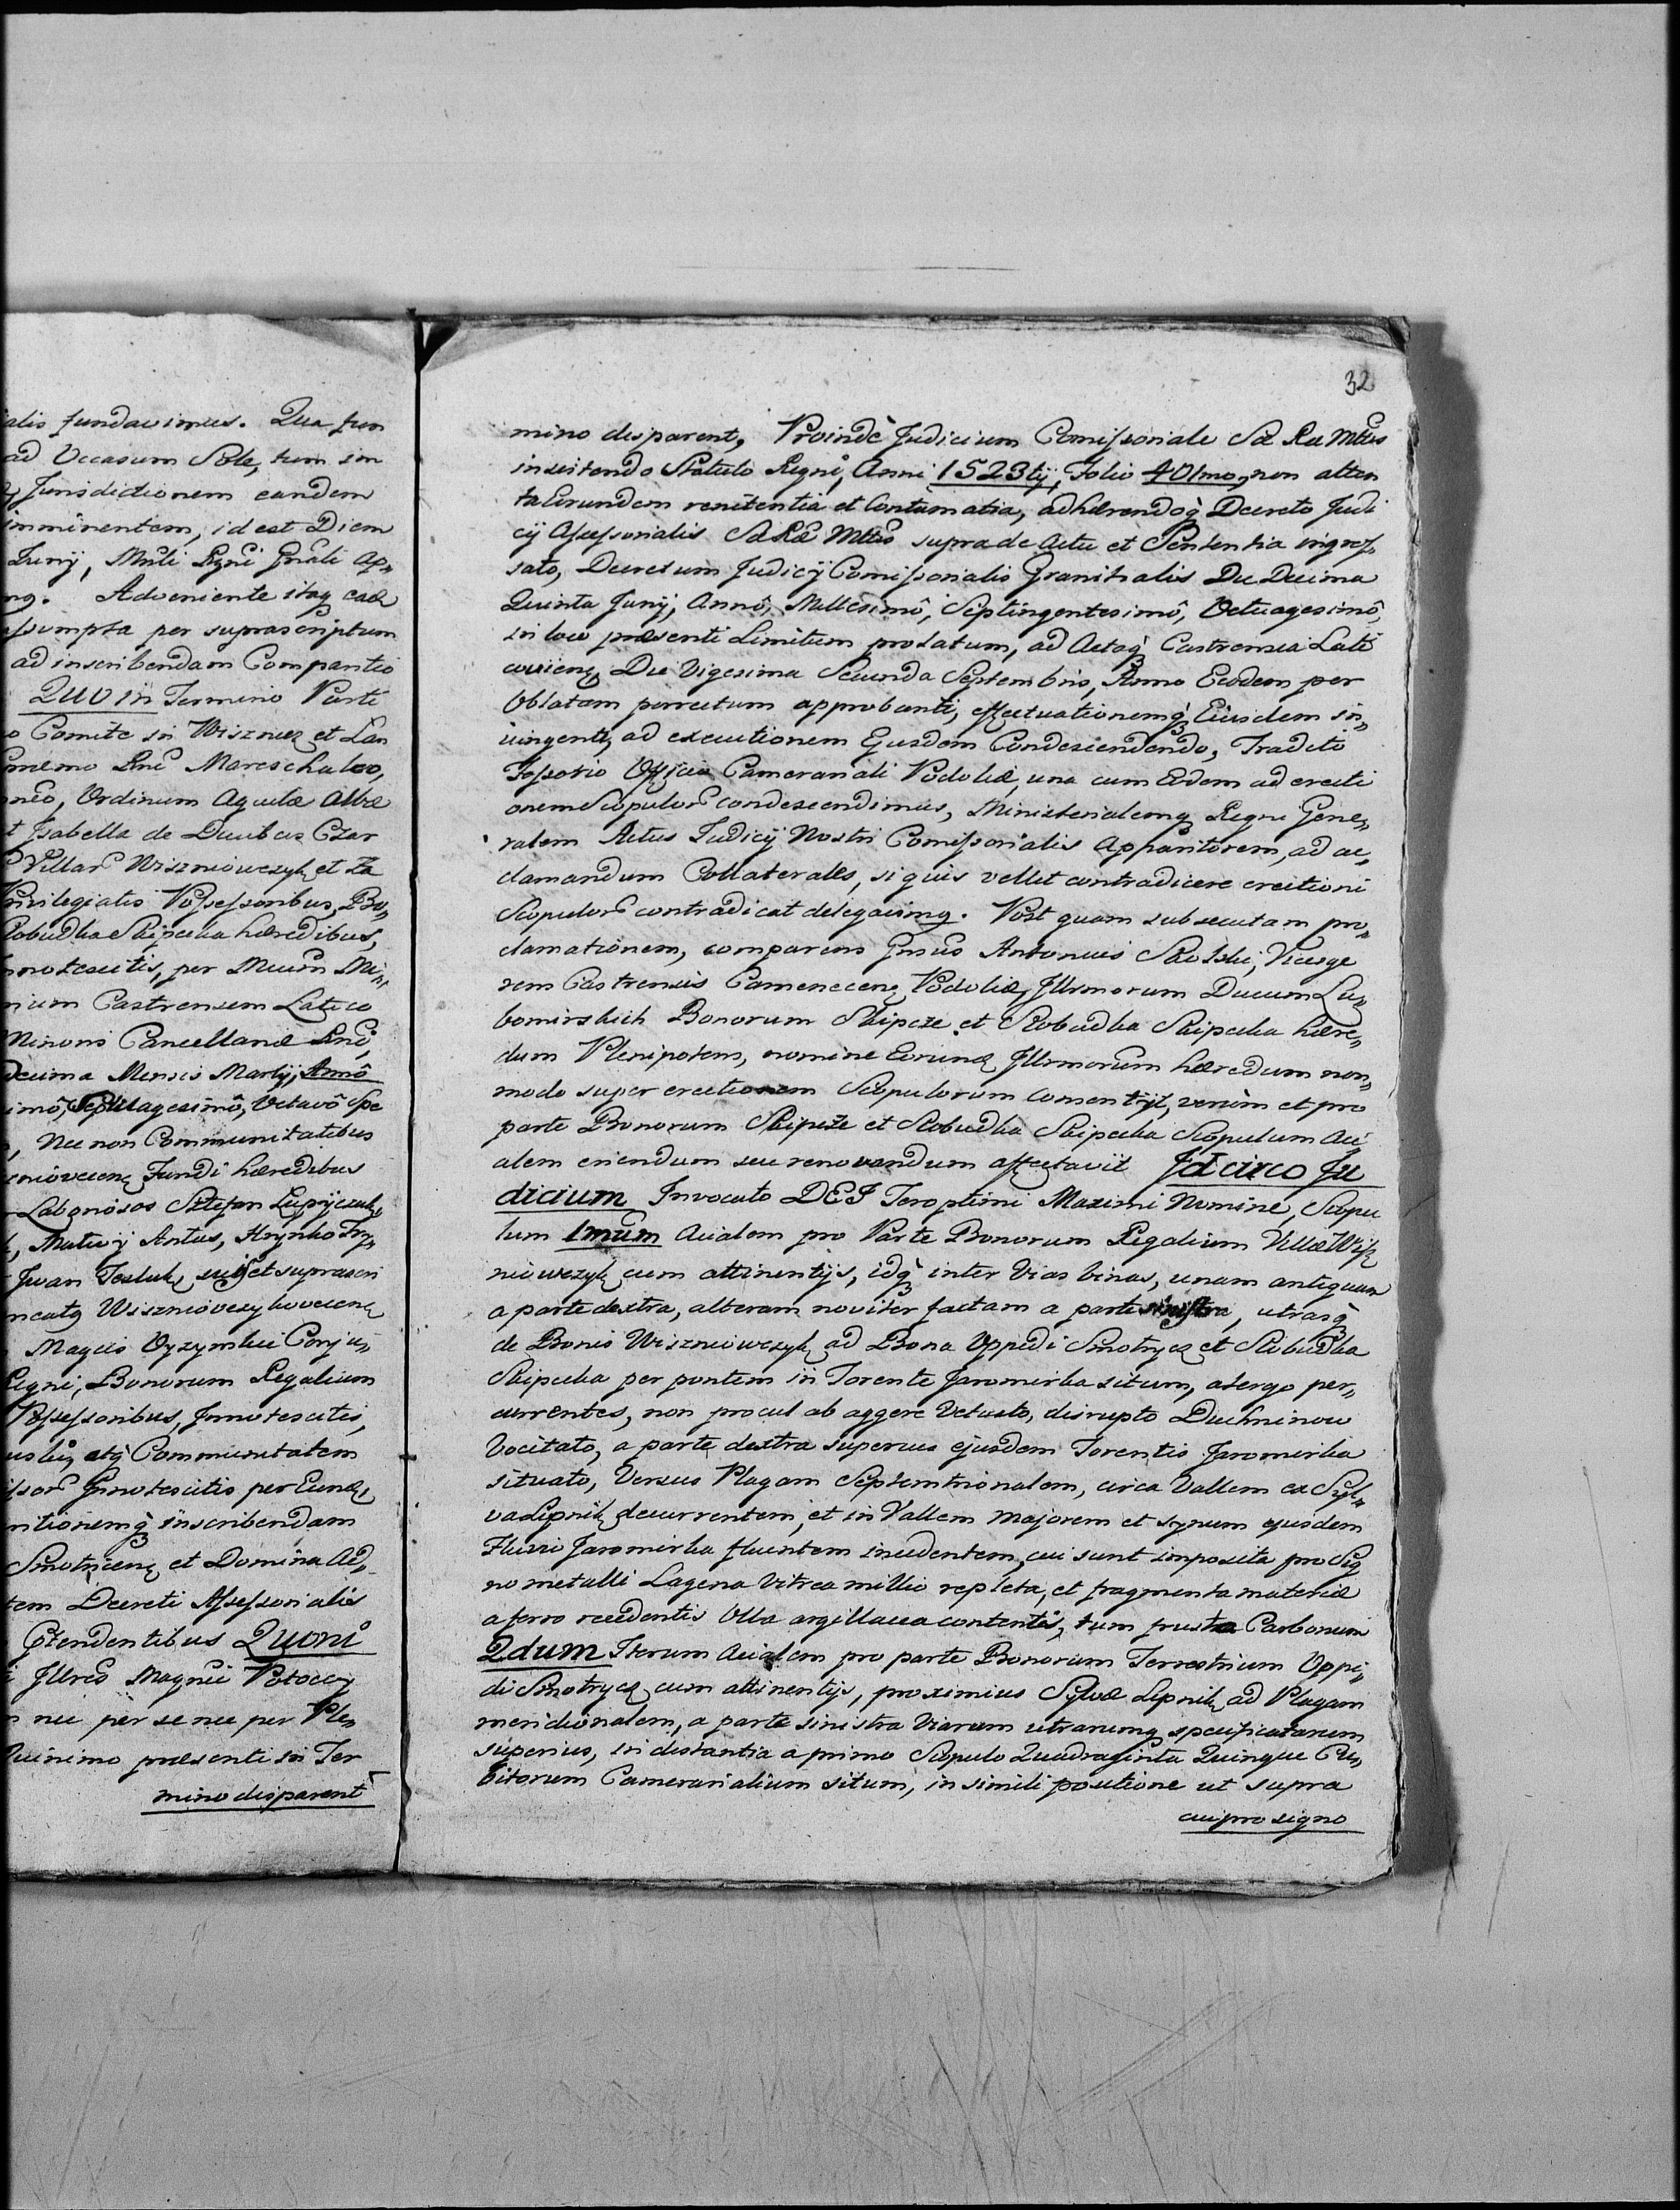 alis fundavimus. Qua fun
ad Occasum Solis, tum in
Jurisdictionem eandem
imminentem, id est Diem
Junij, Mnli Regni Gnali Ap„
Adveniente itaq eade
ssumpta per suprascriptum
ad inscribendam Compartio
QUO in Termino Parte
o Comite in Wisznicz et Lan
Regni Mareschalco,
Ordinum Aquilæ Albæ
t Isabella de Ducibus Czar
Villar Wiszniowczyk et Za
Privilegiatis Possessoribus, Bo„
lobudka Skipecka hæredibus,
nnotescitis, per Ministe
rium Castrensem Latico
Minoris Cancellariæ
Decima Mensis Martij, Annô
imô, Septuagesimô, Octavô Spe
, Nec non Communitatibus
Fundi hæredibus
Laboriosos Sztefan Lupijczuk,
Matwij Antus, Hrynko
Iwan Tesluk, suis et suprascri
ncatq Wiszniovczykoviens
Magcis Ozyzynskie Conju„
Regni, Bonorum Regalium
Possessoribus, Innotescitis,
atq Communitatem
Innotescitis per Eund,
ntionemq inscribendam
Smotricens et Domina Ad„
tem Decreti Assessorialis
Ctendentibus QUONI
Illres Magnci Potoccy
n nec per se nec per Ple„
Quinimo præsenti in Ter
mino disparent
32
mino disparent, Proindè Judicium Comissoriale Sæ Ræ Mttis
insistendo Statuto Regni, Anni 1523tij, Folio 401mo, non atten
ta Eorundem renitentia et Contumatia, adhærendoq Decreto Judi
cij Assessorialis Sæ Ræ Mttis supra de Actu et Sententia ingros„
sato, Decretum Judicij Comissorialis Granitialis Die Decima
Quinta Junij, Annô, Millesimô, Septingentesimô, Octuagesimô,
in loco præsenti Limitum prolatum, ad Actaq Castrensia Lati
coviens, Die Vigesima Secunda Septembris, Anno Eodem per
Oblatam porrectum approbanti, effectuationemq Eiusdem in„
iungenti, ad executionem Ejusdem Condescendendo, Tradito
Fossorio Officio Camerariali Podoliæ, una cum Eodem ad erecti
onem Scopulor condescendimus, Ministerialemq Regni Gene„
ralem Actus Judicij Nostri Comissorialis Apparitorem, ad ac„
clamandum Collaterales, si quis vellet contradicere erectioni
Scopulor contradicat delegavimq. Post quam subsecutam pro„
clamationem, comparens Gnsus Antonius Vicesge
rem Castrensis Camenecens Podoliæ, Illrmorum Ducum Lu„
bomirskich Bonorum Skipcze et Slobudka Skipecka hære„
dum Plenipotens, nomine Eorund Illrmorum hæredum non„
modo super erectionem Scopulorum consentijt, verùm et pro
parte Bonorum Skipcze et Slobudka Skipecka Scopulum Aci
alem eriendum seu renovandum affectavit Idcirco Ju
dicium Invocato DEI Teroptimi Maximi Nomine, Scopu
lum 1mum Acialem pro Parte Bonorum Regalium Villæ Wisz
niowczyk cum attinentijs, idq inter Vias binas, unam antiquam
a parte dextra, alteram noviter factam a parte sinistra, utrasq
de Bonis Wiszniowczyk ad Bona Oppidi Smotrycz et Slobudka
Skipecka per pontem in Torente Jaromirka situm, a tergo per„
currentes, non procul ab aggere Vetusto, disrupto Duchninow
Vocitato, a parte dextra superius ejusdem Torentis Jaromirka
situato, Versus Plagam Septemtrionalem, circa Vallem ex Syl„
va Lipnik decurrentem, et in Vallem majorem et synum ejusdem
Fluvii Jaromirka fluentem incedentem, cui sunt imposita pro Sig
no metalli Lagena Vitrea millio repleta, et fragmenta materiæ
a ferro recedentis Olla argillacea contentis, tum frusta Carbonum
2dum Iterum Acialem pro parte Bonorum Terrestrium Oppi„
di Smotrycz cum attinentijs, proximius Sylvæ Lipnik ad Plagam
meridionalem, a parte sinistra Viarum utrarumq specificatarum
superius, in distantia a primo Scopulo Quadraginta Quinque Cu„
bitorum Camerarialium situm, in simili positione ut supra
cui pro signo